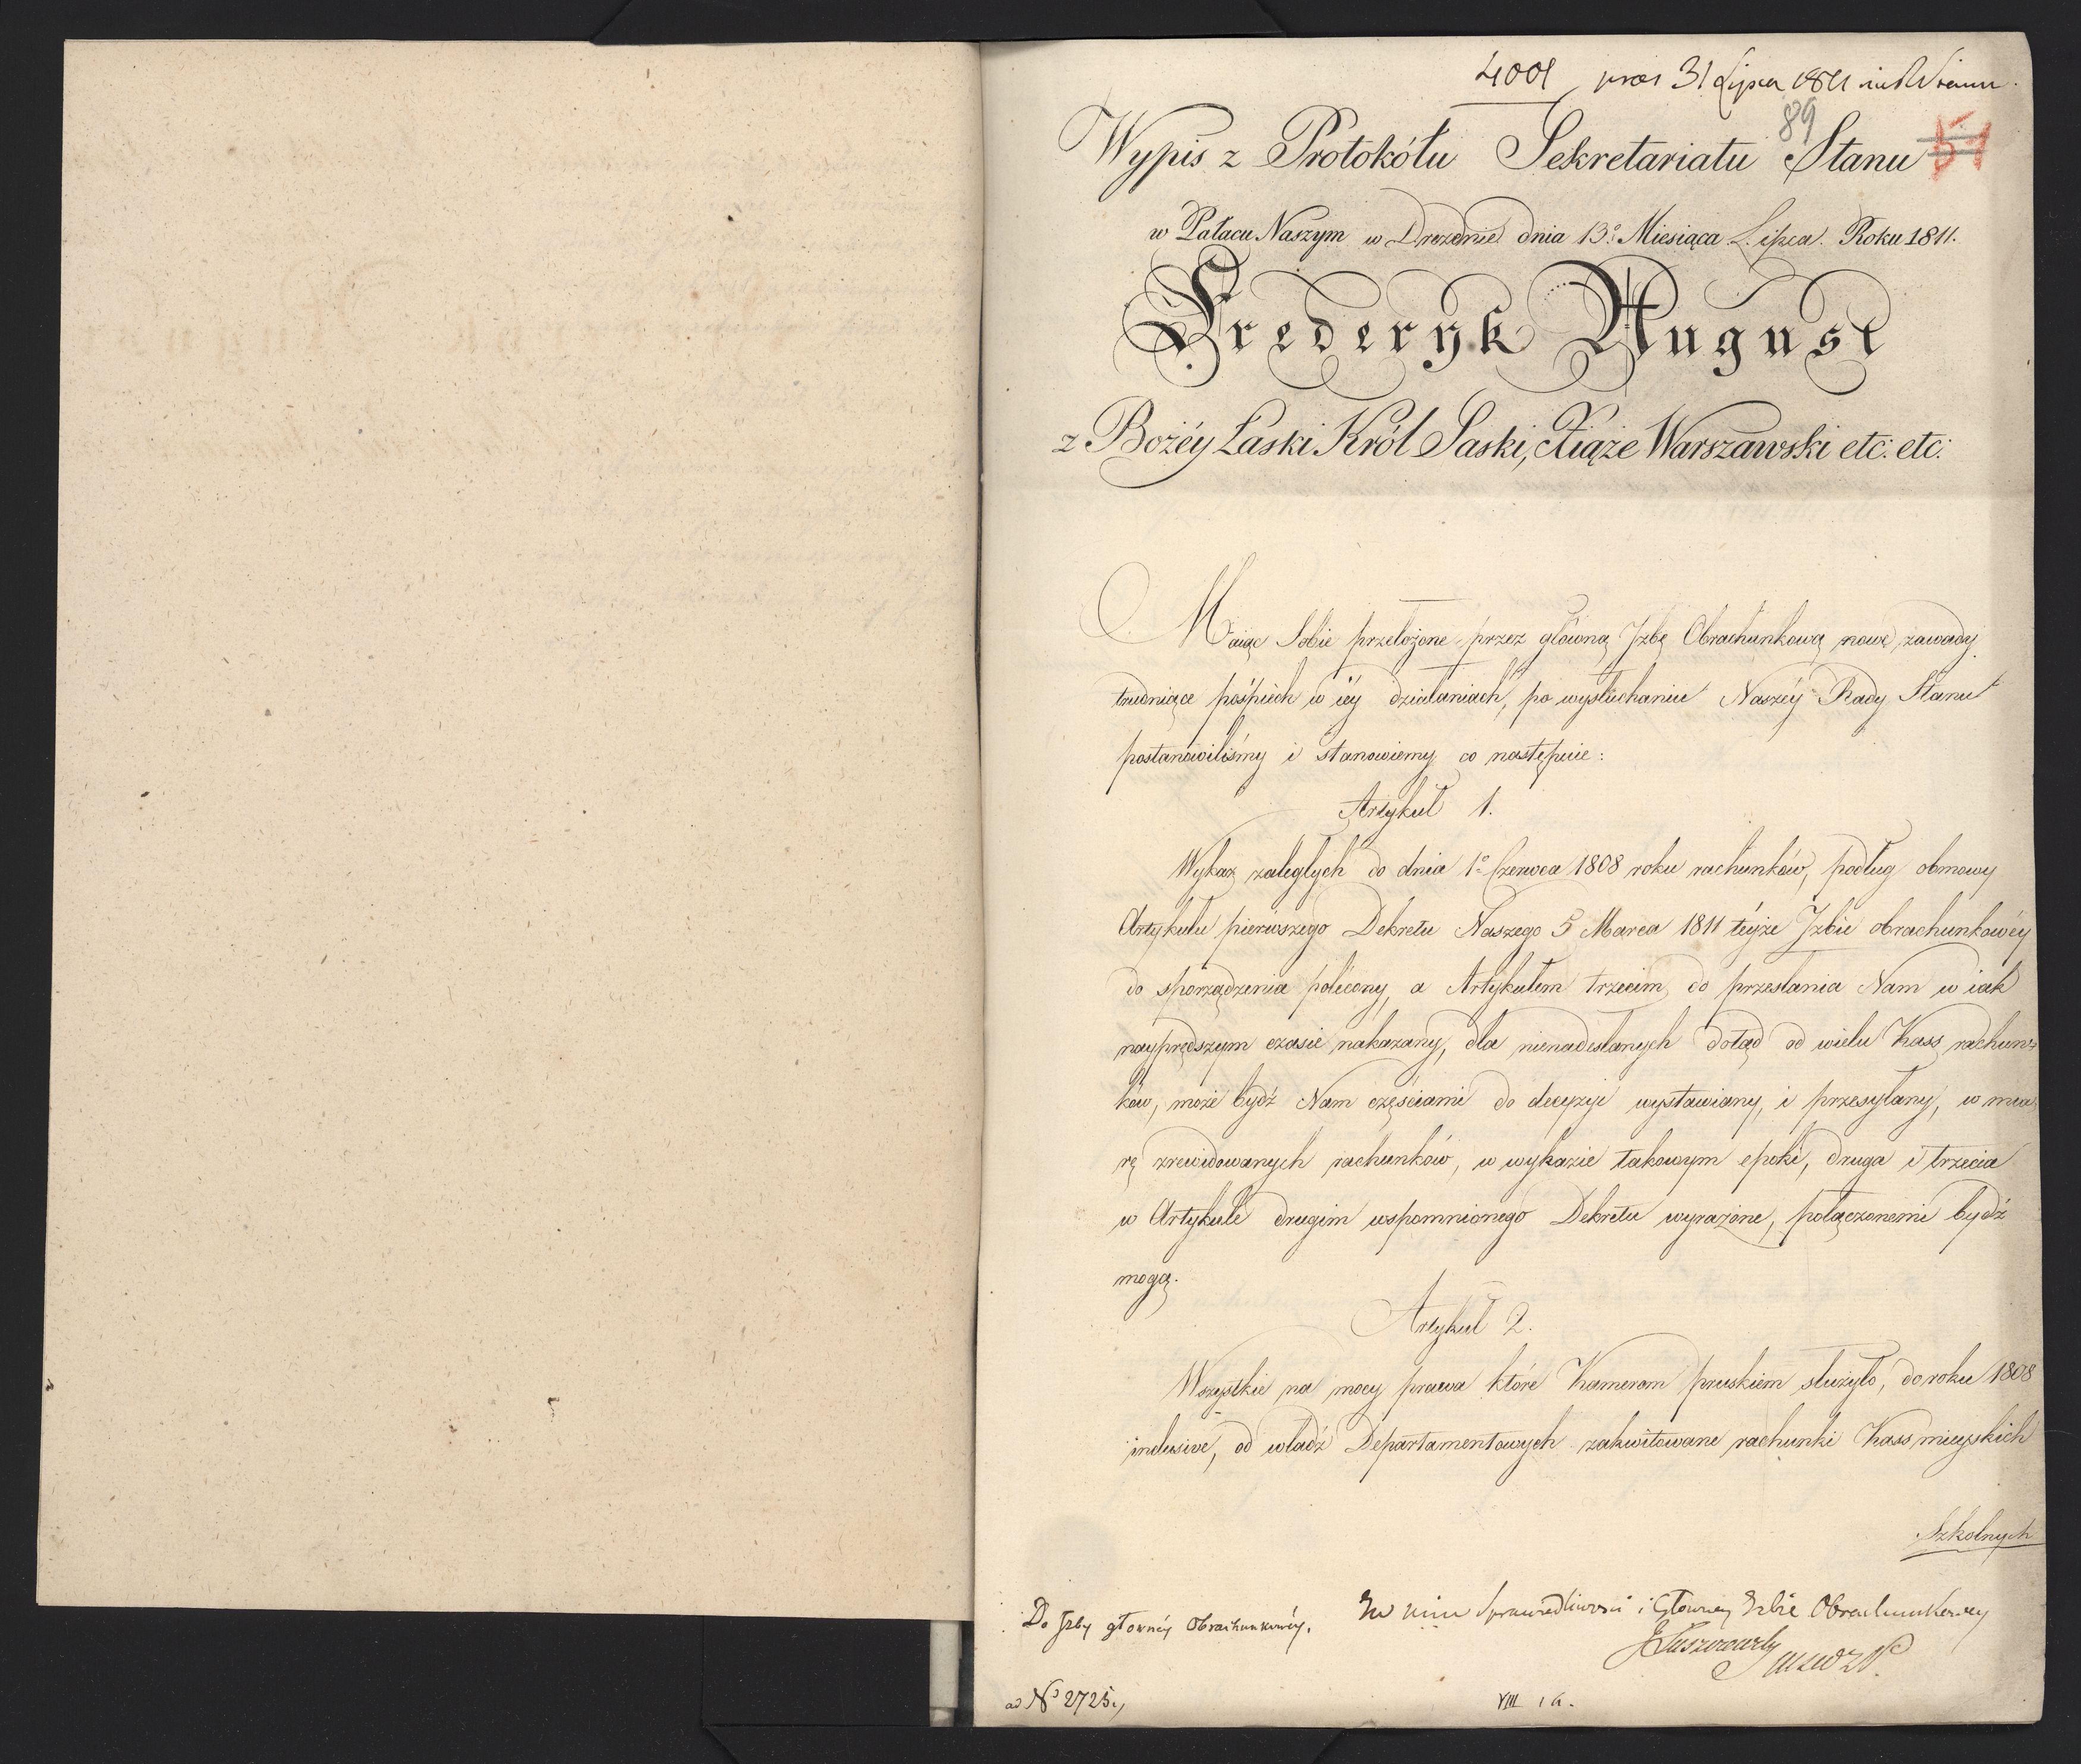 4001 prae 31 Lipca 1811
89
Wypis z Protokółu Sekretariatu Stanu 51
w Pałacu Naszym w Dreznie dnia 13° Miesiąca Lipca Roku 1811.
Fryderyk August
z Bożéy Łaski Król Saski, Xiąże Warszawski etc: etc:
Maiąc Sobie przełożone przez główną Jzbę Obrachunkową nowe zawady
trudniące pośpiech w iéy działaniach, po wysłuchaniu Naszéy Rady Stanu
postanowiliśmy i stanowiemy co następuie:
Artykuł 1.
Wykaz zaległych do dnia 1° Czerwca 1808 roku rachunków, podług obmowy
Artykułu pierwszego Dekretu Naszego 5 Marca 1811 téyże Jzbie obrachunkowéy
do sporządzenia polécony, a Artykułem trzecim do przesłania Nam w iak
nayprędszym czasie nakazany, dla nienadesłanych dotąd od wielu Kass rachun-
ków, może bydź Nam częściami do decyzyi wystawiany, i przesyłany, w mia-
rę zrewidowanych rachunków, w wykazie takowym epoki, druga i trzecia
w Artykule drugim wspomnionego Dekretu wyrażone, połączonemi bydź
mogą.
Artykuł 2.
Wszystkie na mocy prawa które Kamerom pruskiem służyło, do roku 1808
inclusive, od władz Departamentowych zakwitowane rachunki Kass mieyskich
Szkolnych
Do Jzby głównéy Obrachunkowéy.
Sprawiedliwości i Główney Izbie Obrachunkowey
ad N° 2725.
VIII 1a.